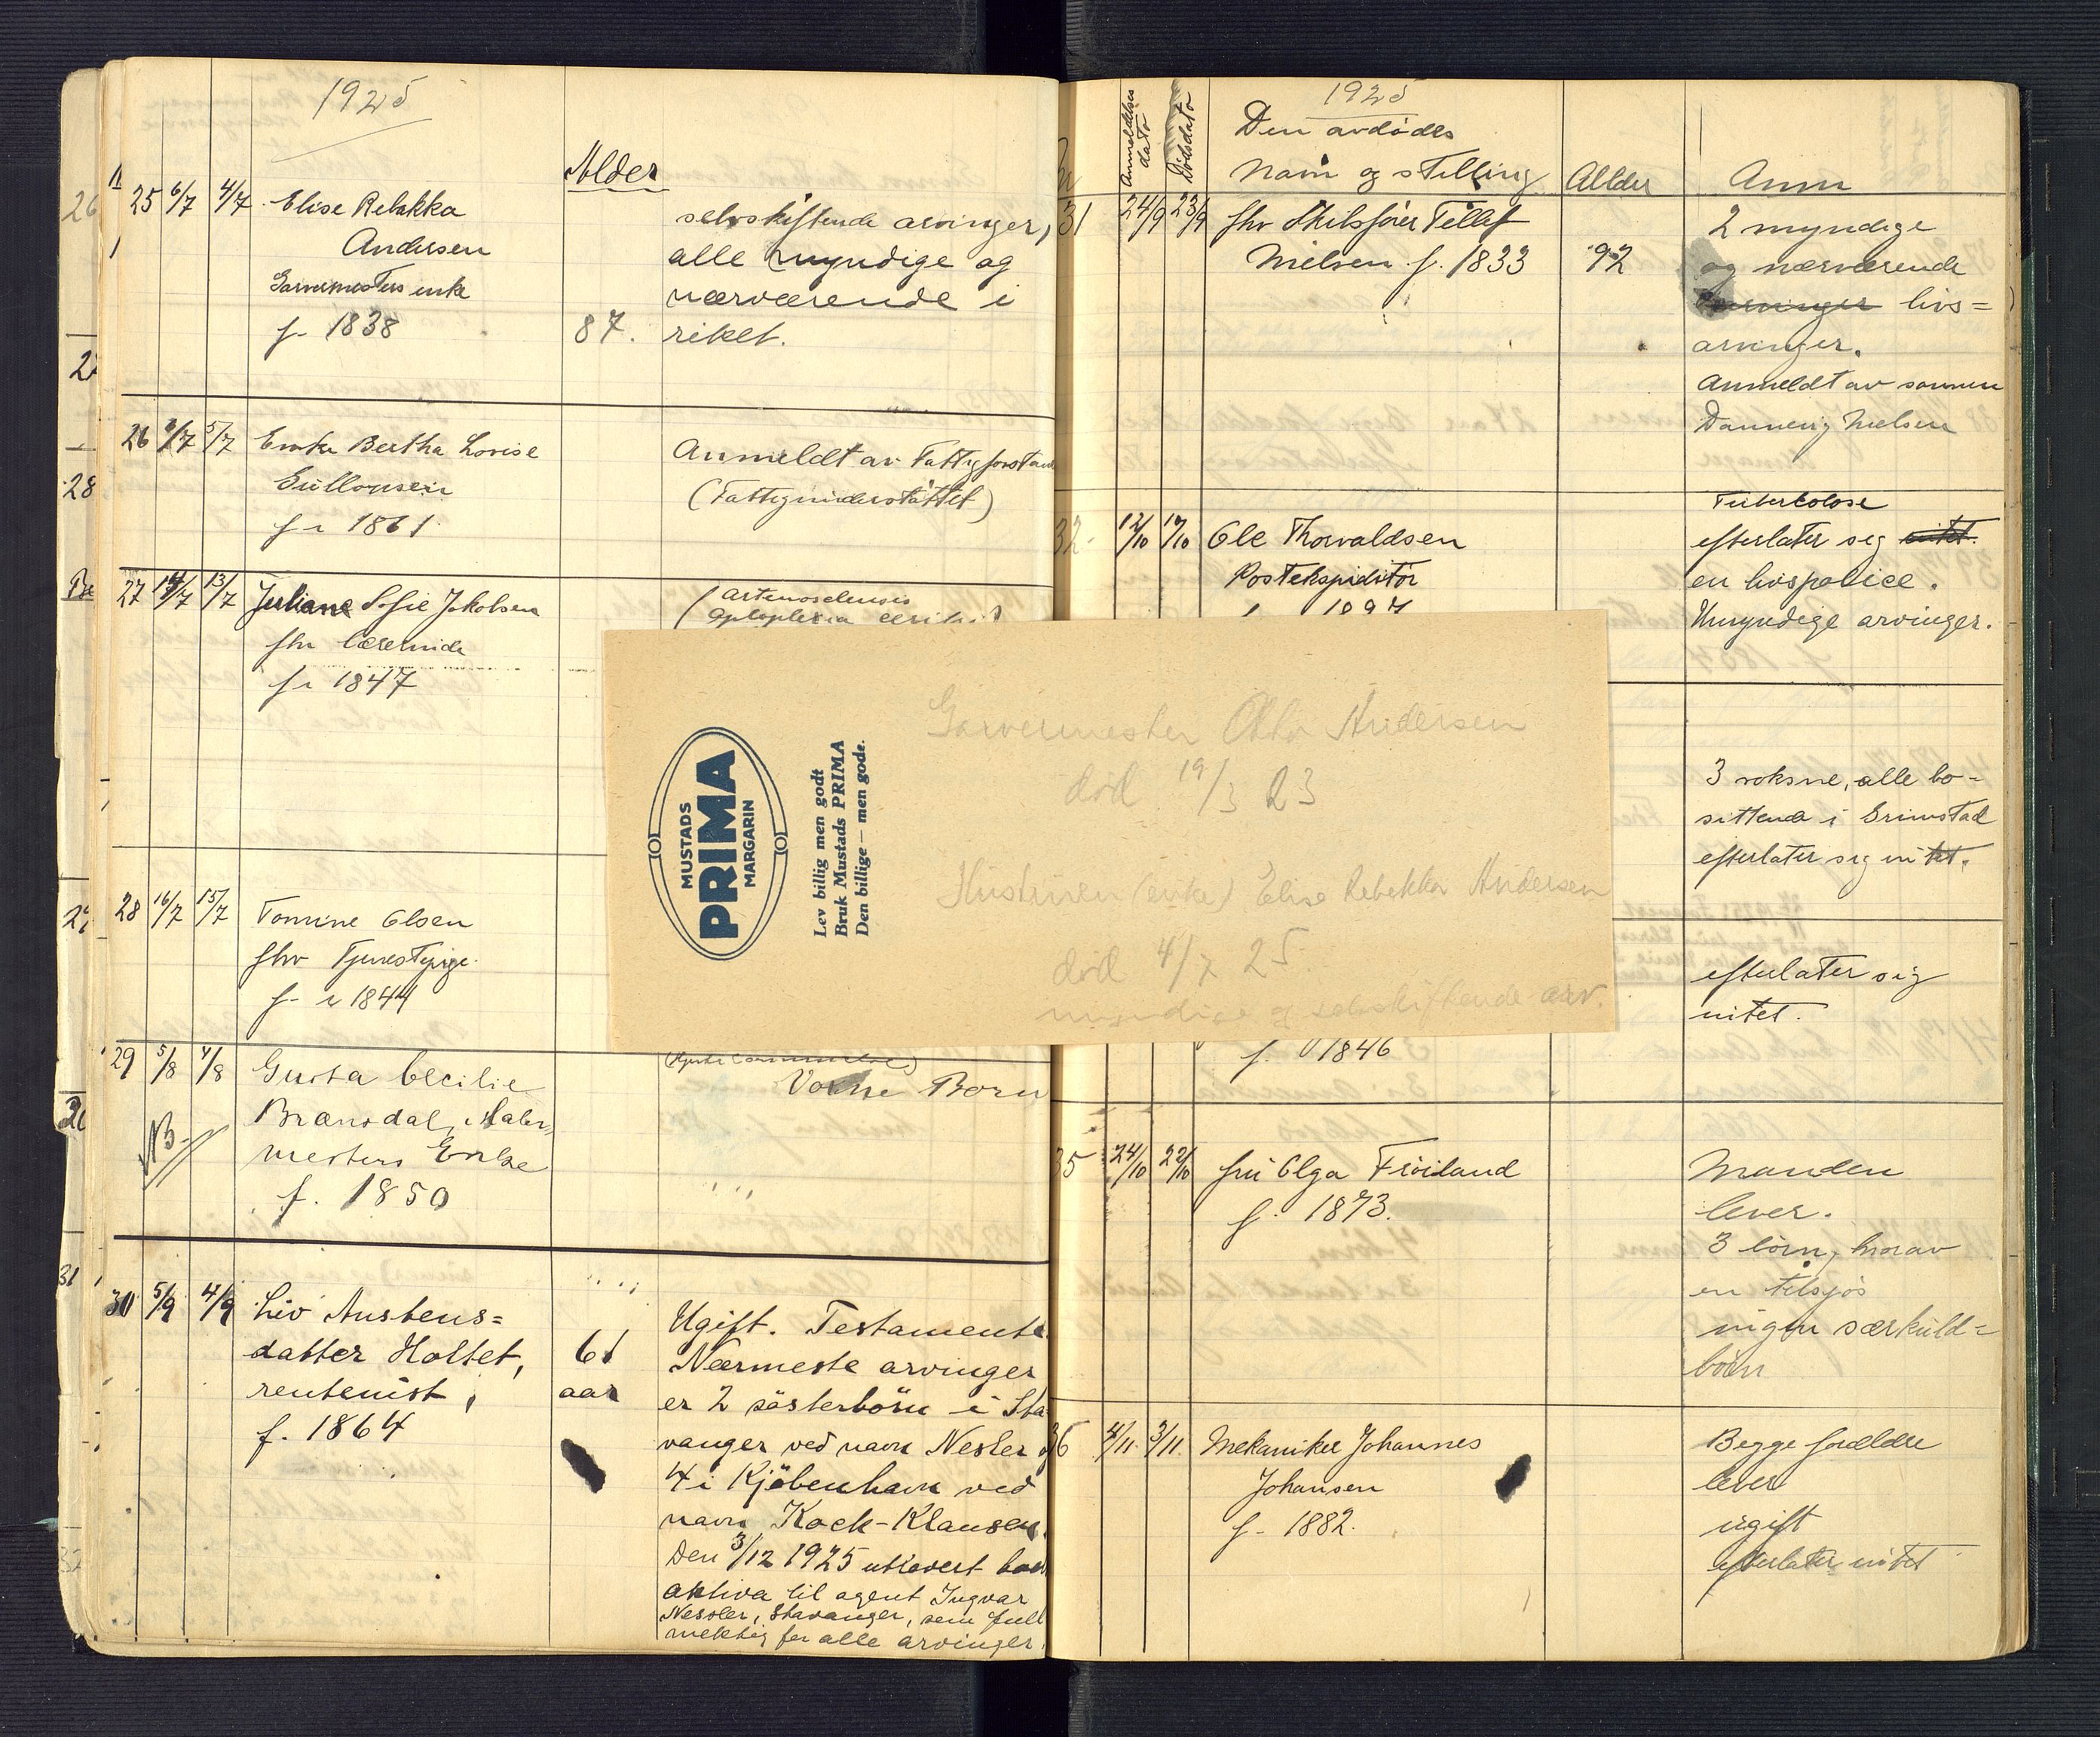 1925
Alder
25 6/7 4/7 Elise Rebekka
Andersen
Garvermesters enke
f. 1838
87.
selvskiftende arvinger,
alle myndige og
nærværende i
riket.
26 8/7 5/7 Enke Bertha Lovise
Gullonsen
f. 1861.
Anmeldt av Fattigforstan
(Fattigunderstøttet)
27 14/7 13/7 Juliane Sofie Jakobsen
fhv lærerinde
f. 1847
28 16/7 15/7 Tomine Olsen
fhv Tjenestepige.
f. 1844
29 5/8 4/8 Gusta Cecilie
Brænsdal, Maler
mesters Enke
f. 1850
NB
Voxne Børn
30 5/9 4/9 Liv Austens=
datter Holtet,
rentenist,
f. 1864
61
aar
Ugift. Testamente.
Nærmeste arvinger
er 2 søsterbörn i Sta
vanger ved navn Nesler o
4 i Kjöbenhavn ved
navn Kock-Klausen.
Den 3/12 1925 utlevert boets
aktiva til agent Ingvar
Nessler, Stavanger, som full
mektig for alle arvinger.
26
27
28
31
1925
Anmeldelses
dato
Dödsdato
Den avdødes
Navn og stilling
Allder
Anm
31 24/9 23/9 fhv Skibsfører Tellef
Nielsen f. 1833
92
2 myndige
og nærværende
arvinger livs=
arvinger.
Anmeldt av sønnen
Dannevig Nielsen
32 12/10 Ole Thorvaldsen
Postekspeditør
Tuberkolose
efterlater seg intet.
en livspolice.
Umyndige arvinger.
3 voksne, alle bo-
sittende i Grimstad
efterlater seg intet.
efterlater sig
intet.
f. 1846
35 24/10 22/10 fru Olga Frøiland
f. 1873.
Manden
lever.
3 börn, hvorav
en tilsjøs
ingen særkuld=
börn
36 4/11. 3/11. Mekaniker Johannes
Johansen
f. 1882.
Begge forældre
lever
ugift
efterlater intet
MUSTADS
PRIMA
MARGARIN
Lev billig men godt
Bruk Mustads PRIMA
Den billige — men gode.
Garvermester Otto Andersen
död 19/3 23
Hustruen (enke) Elise Rebekka Andersen
död 4/7 25.
myndige og selvskiftende arv.